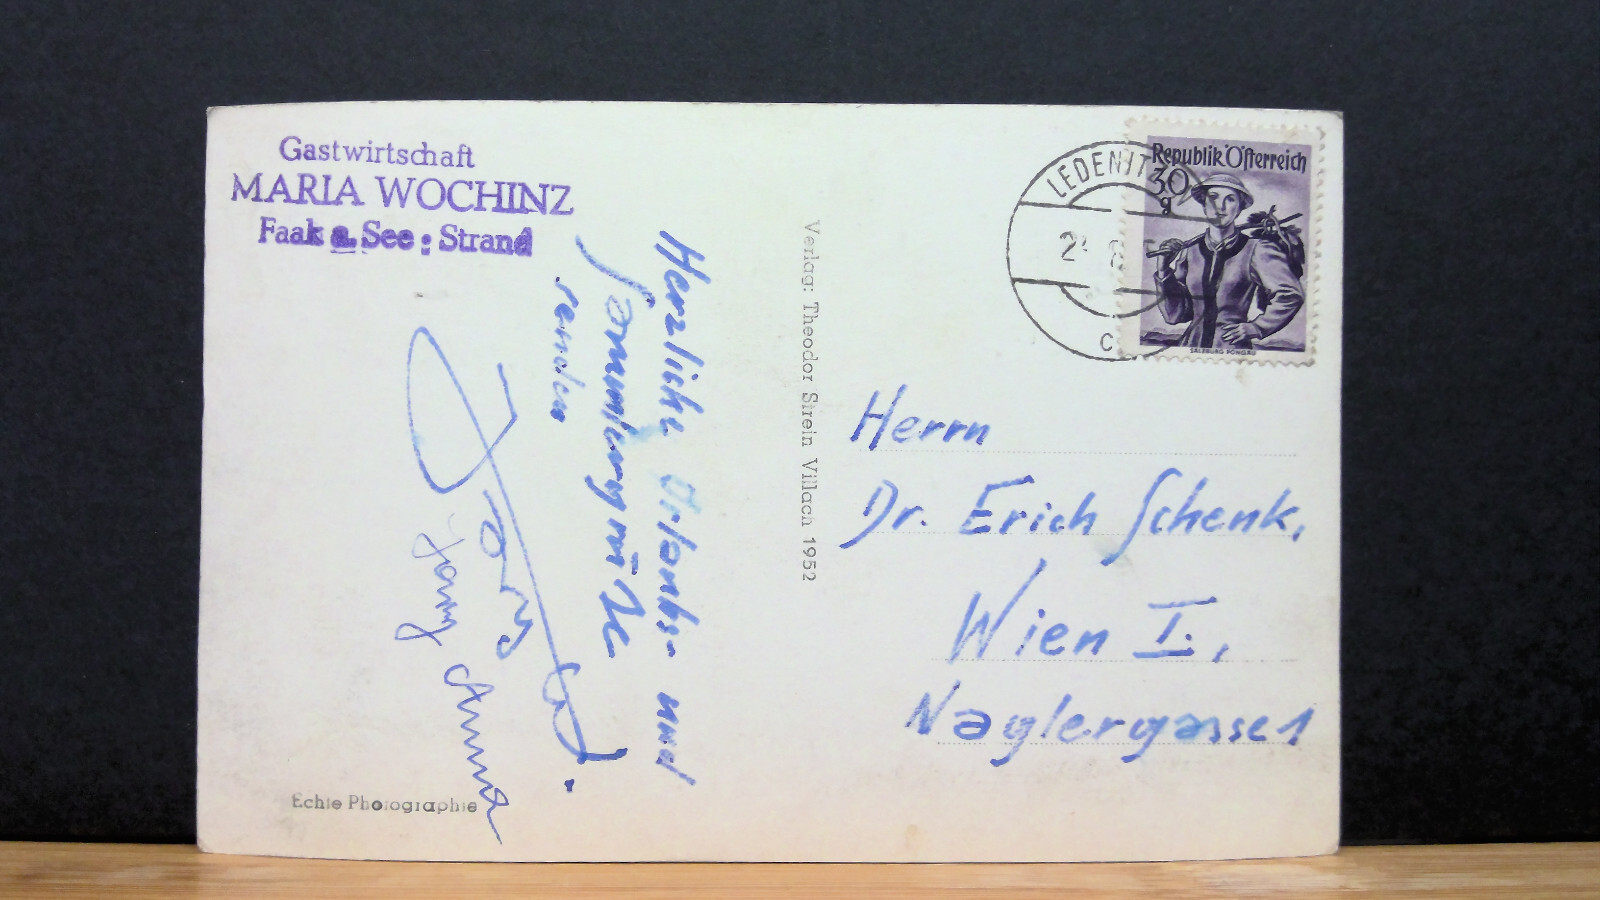 Gastwirtschaft
MARIA WOCHINZ
Faak a. See : Strand
Herzliche Urlaubs- und
senden
Echte Photographie
Verlag: Theodor Strein Villach 1952
LEDENITZ
2 8
c
Republik Österreich
30
g
SALZBURG PONGAU
Herrn
Dr. Erich Schenk,
Wien I.,
Naglergasse 1